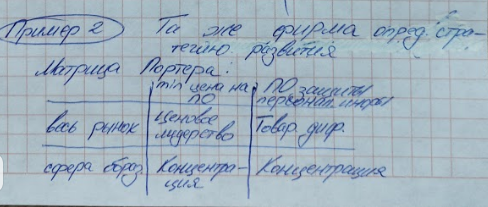 Пример 2 Та же фирма опред. стра-
тегию развития
Матрица Портера:
min цена на ПО | ПО защиты персонал. инфы
весь рынок | Ценовое лидерство | Товар. диф.
сфера образ. | Концентра-ция | Концентрация